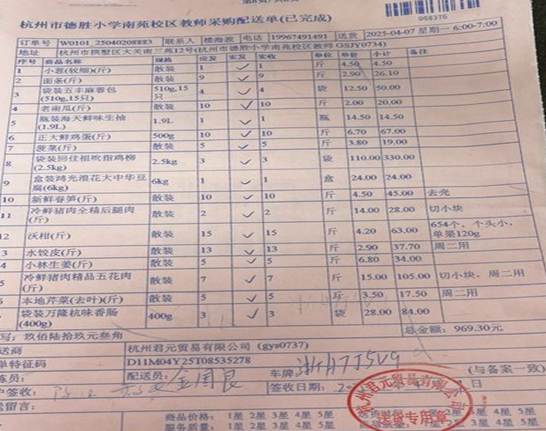 杭州市德胜小学南苑校区教师采购配送单(已完成)
订单号 W0101_2504020RRR3 联系人 楼海波 电话 19967491493 送货 2025-04-07 星期一 6:00-7:00
地址 杭州市拱墅区大关南三苑12号(杭州市德胜小学南苑校区教师 GSJY0734)
序号 商品名称 规格 应发 实发 实收 单位 单价 小计 备注
1 小葱(较细)(斤) 散装 1 ✓ 1 斤 4.50 4.50
2 面条(斤) 散装 9 ✓ 9 斤 2.90 26.10
3 袋装五丰麻蓉包(510g,15只) 510g,15只 4 ✓ 4 袋 12.50 50.00
4 老南瓜(斤) 散装 10 ✓ 10 斤 2.00 20.00
5 瓶装海天鲜味生抽(1.9L) 1.9L 1 ✓ 1 瓶 14.50 14.50
6 正大鲜鸡蛋(斤) 500g 10 ✓ 10 斤 6.70 67.00
7 菠菜(斤) 散装 5 ✓ 5 斤 3.80 19.00
8 袋装回住相吮指鸡柳(2.5kg) 2.5kg 3 ✓ 3 袋 110.00 330.00
9 盒装鸿光浪花大中华豆腐(6kg) 6kg 1 ✓ 1 盒 24.00 24.00
10 新鲜春笋(斤) 散装 10 ✓ 10 斤 4.50 45.00 去壳
11 冷鲜猪肉全精后腿肉(斤) 散装 2 ✓ 2 斤 14.00 28.00 切小块
12 沃柑(斤) 散装 15 ✓ 15 斤 4.20 63.00 654个,个头小,单果120g
3 水饺皮(斤) 散装 13 ✓ 13 斤 2.90 37.70 周二用
4 小林生姜(斤) 散装 5 ✓ 5 斤 6.80 34.00
5 冷鲜猪肉精品五花肉(斤) 散装 7 ✓ 7 斤 15.00 105.00 切小块,周二用
6 本地芹菜(去叶)(斤) 散装 5 ✓ 5 斤 3.50 17.50 周二用
袋装万隆杭味香肠(400g) 400g 3 ✓ 3 袋 28.00 84.00
写: 玖佰陆拾玖元叁角 总金额: 969.30元
送商 杭州君元贸易有限公司 (gys0737)
单特征码 D11M04Y25T08535278
配送员: 金国良 车牌 (与备案一致)
签收: 签收日期:
送留言:
杭州君元贸易有限公司
送货专用章
商品价格: 1星 2星 3星 4星 5星
服务质量: 1星 2星 3星 4星 5星